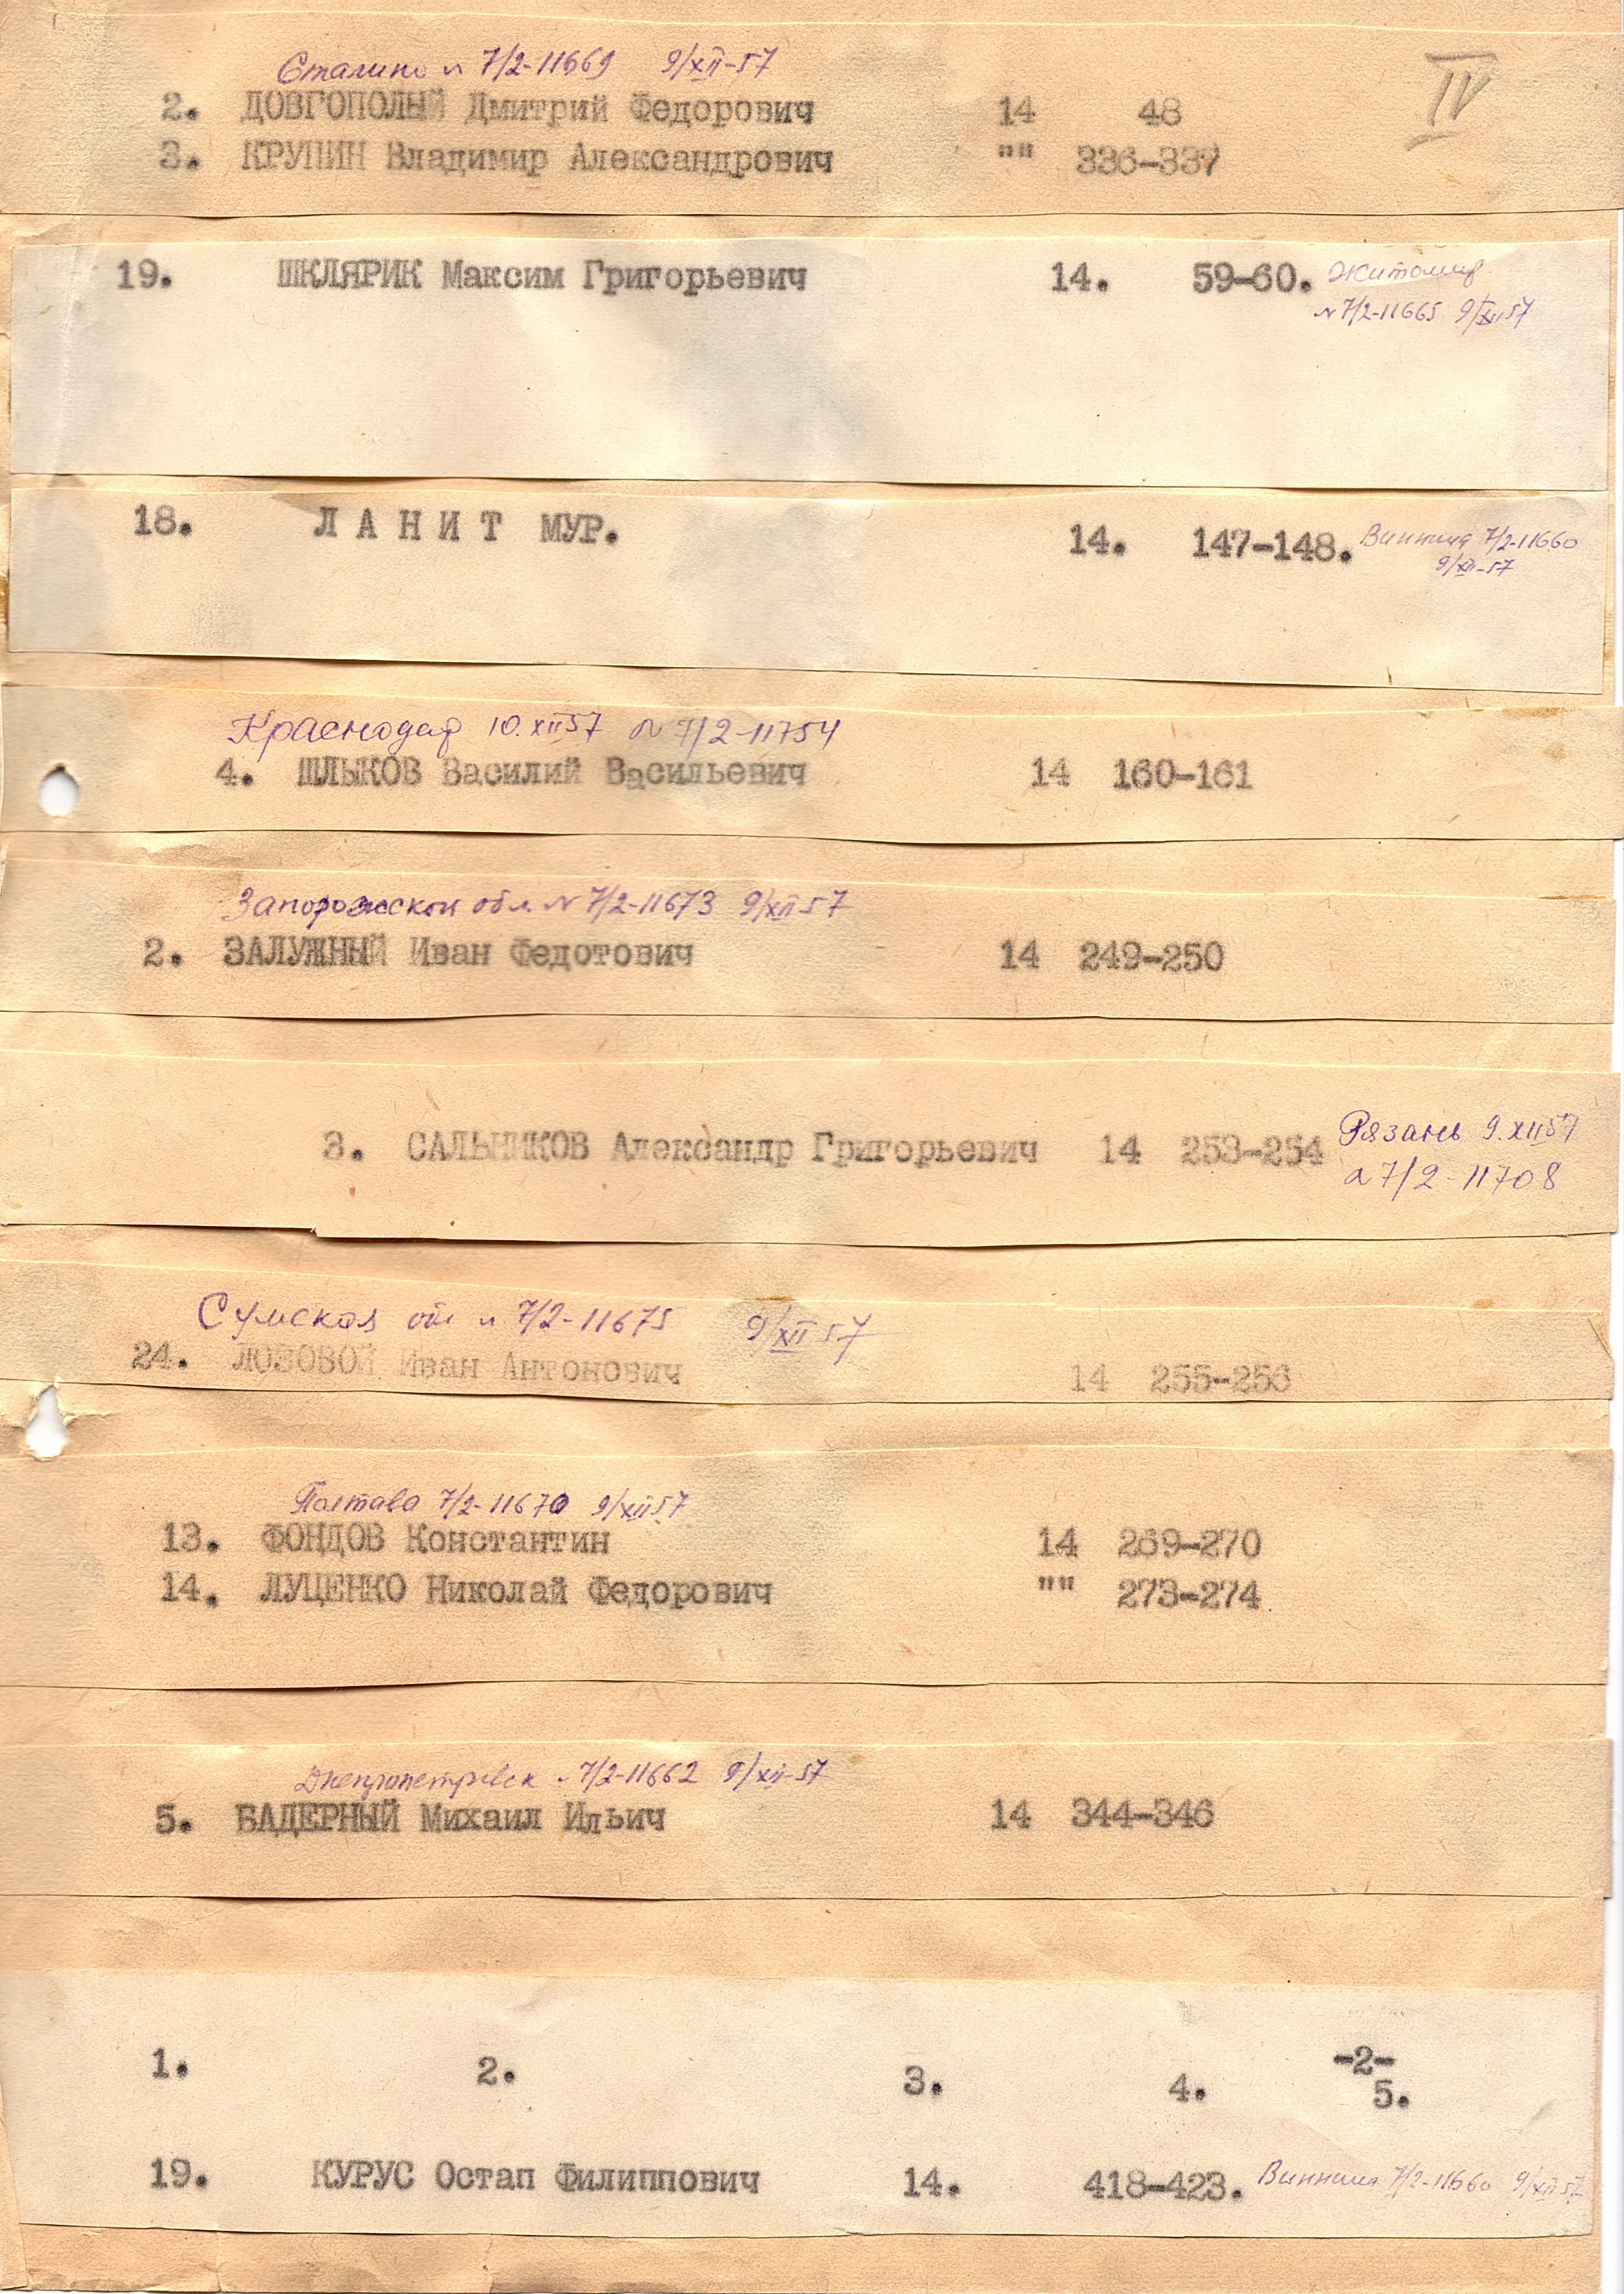 IV
Сталино № 7/2-11669 9/XII-57
2. ДОВГОПОЛЫЙ Дмитрий Федорович 14 48
3. КРУПИН Владимир Александрович "" 336-337
19. ШКЛЯРИК Максим Григорьевич 14. 59-60. Житомир
№ 7/2-11665 9/XII 57
18. Л А Н И Т МУР. 14. 147-148. Винница 7/2-11660
9/XII-57
Краснодар 10.XII57 № 7/2-11754
4. ШЛЫКОВ Василий Васильевич 14 160-161
Запорожской обл. № 7/2-11673 9/XII 57
2. ЗАЛУЖНЫЙ Иван Федотович 14 249-250
3. САЛЬНИКОВ Александр Григорьевич 14 253-254 Рязань 9.XII57
№ 7/2-11708
Сумская обл № 7/2-11675 9/XII 57
24. ЛОЗОВОЙ Иван Антонович 14 255-256
Полтава 7/2-11670 9/XII57
13. ФОНДОВ Константин 14 269-270
14. ЛУЦЕНКО Николай Федорович "" 273-274
Днепропетровск № 7/2-11662 9/XII-57
5. БАДЕРНЫЙ Михаил Ильич 14 344-346
-2-
1. 2. 3. 4. 5.
19. КУРУС Остап Филиппович 14. 418-423. Винница 7/2-11660 9/XII-57